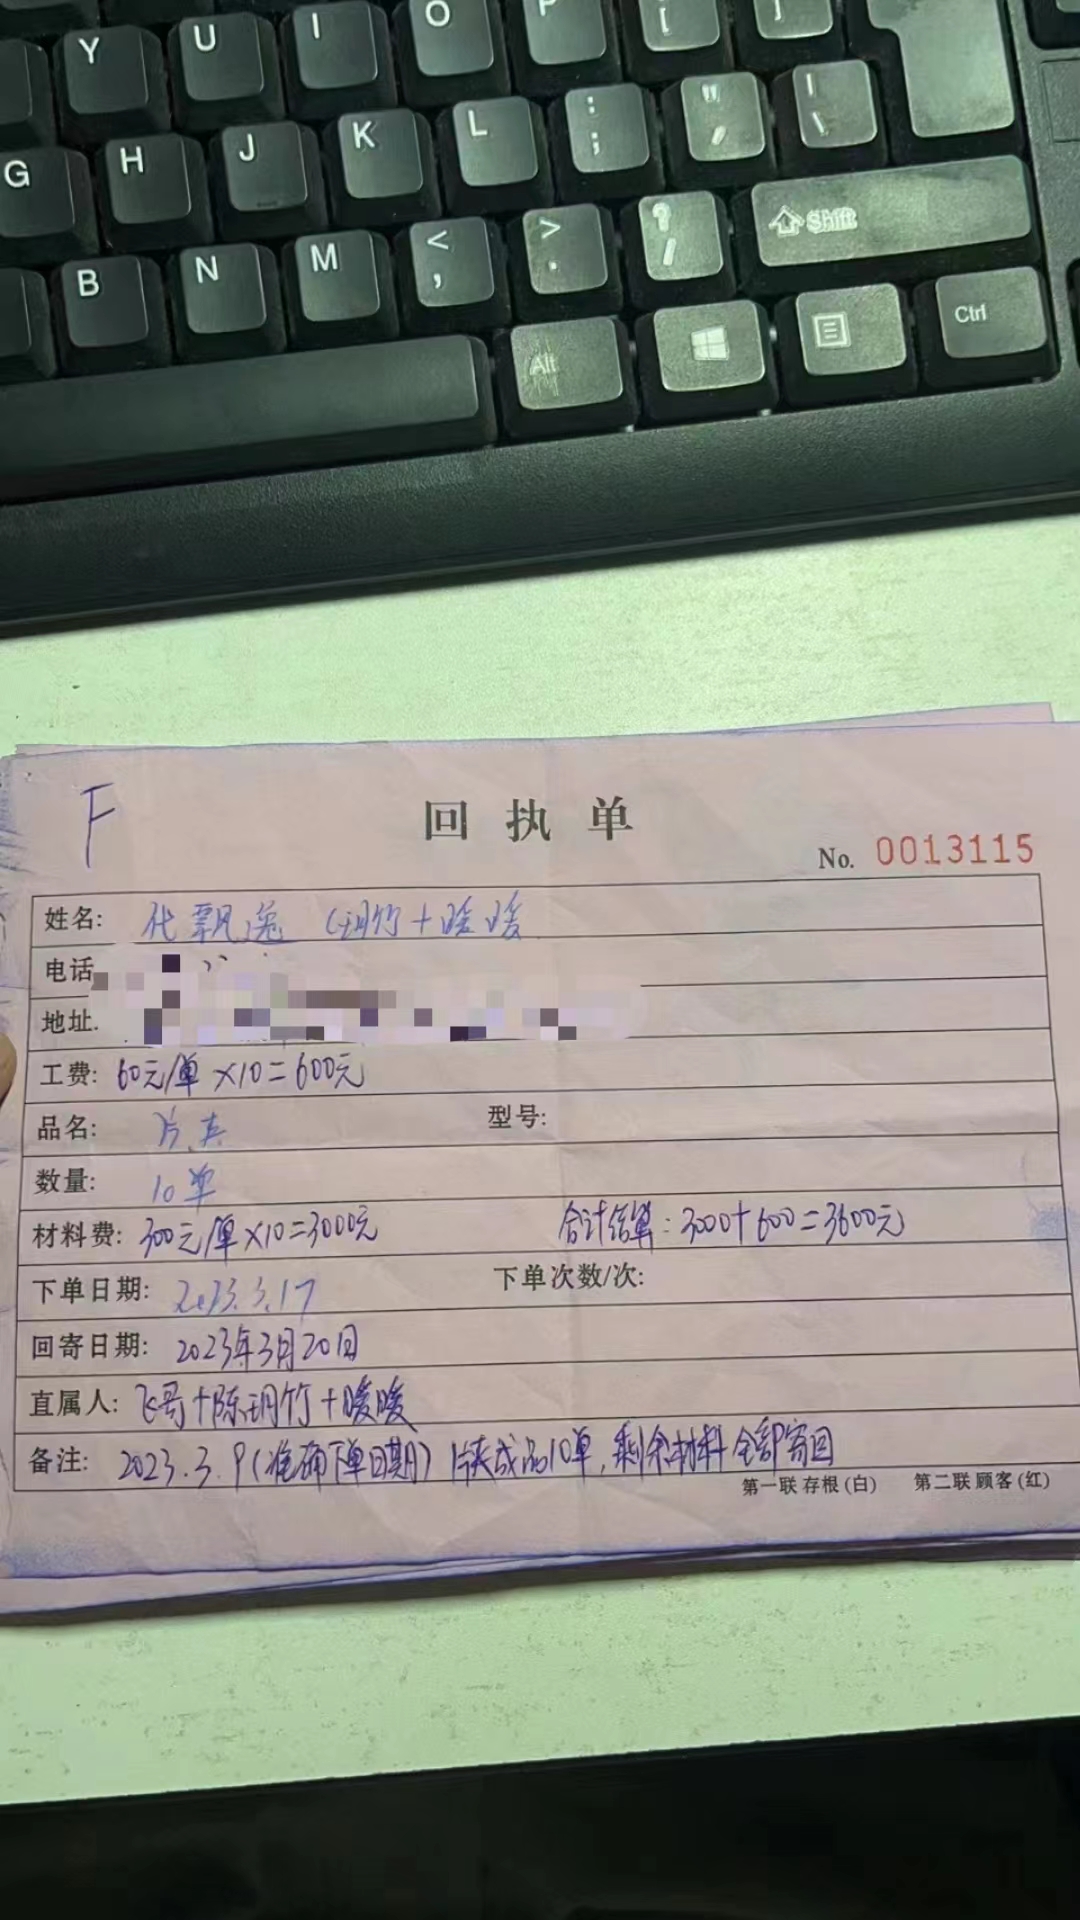 Y U I O P [ ]
G H J K L : ; " ' | \
B N M < , > . ? / Shift
Alt Ctrl
F
回执单
No. 0013115
姓名: 代飘逸 (玥竹+暖暖
电话
地址.
工费: 60元/单×10=600元
品名: 片夹 型号:
数量: 10单
材料费: 300元/单×10=3000元 合计结算:3000+600=3600元
下单日期: 2023.3.17 下单次数/次:
回寄日期: 2023年3月20日
直属人: 飞哥+陈玥竹+暖暖
备注: 2023.3.9(准确下单日期)片夹成品10单,剩余材料全部寄回
第一联 存根(白) 第二联 顾客(红)